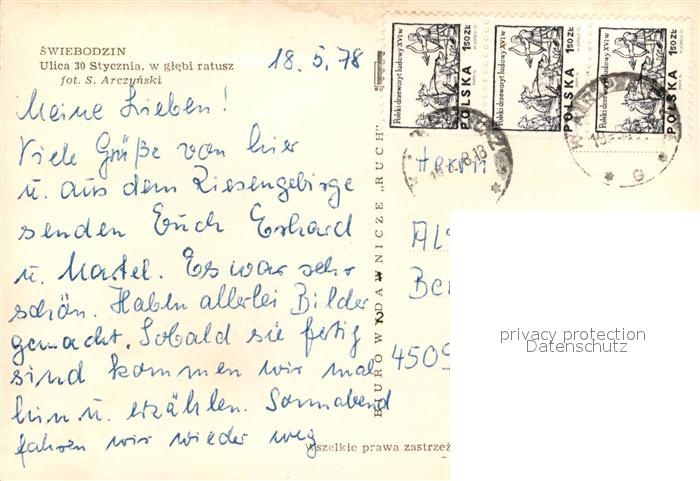 ŚWIEBODZIN
Ulica 30 Stycznia, w głębi ratusz
fot. S. Arczyński
18.5.78
Meine Lieben!
Viele Grüße von hier
u. aus dem Riesengebirge
senden Euch Erhard
u. Martel. Es war sehr
schön. Haben allerlei Bilder
gemacht. Sobald sie fertig
sind kommen wir mal
hin u. erzählen. Sonnabend
fahren wir wieder weg
BIURO WYDAWNICZE „RUCH"
Wszelkie prawa zastrzeż
Polski drzeworyt ludowy XVI w
1.50 ZŁ
POLSKA
Polski drzeworyt ludowy XVI w
1.50 ZŁ
POLSKA
Polski drzeworyt ludowy XVI w
1.50 ZŁ
POLSKA
Herrn
Al
Ber
4509
privacy protection
Datenschutz